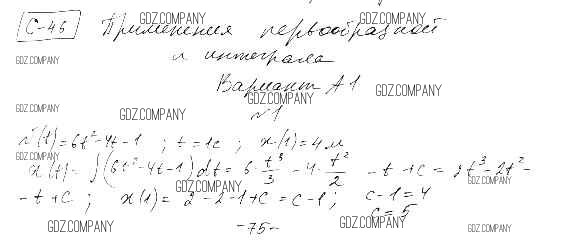 С-46 Применения первообразной
и интеграла
Вариант А1
№1
v(t)=6t²-4t-1 ; t=1c ; x(1)=4м
x(t)= ∫(6t²-4t-1)dt = 6·t³/3 - 4·t²/2 - t + C = 2t³-2t²-
- t + C ; x(1) = 2-2-1+C = C-1 ; C-1=4
C=5
-75-
GDZ.COMPANY
GDZ.COMPANY
GDZ.COMPANY
GDZ.COMPANY
GDZ.COMPANY
GDZ.COMPANY
GDZ.COMPANY
GDZ.COMPANY
GDZ.COMPANY
GDZ.COMPANY
GDZ.COMPANY
GDZ.COMPANY
GDZ.COMPANY